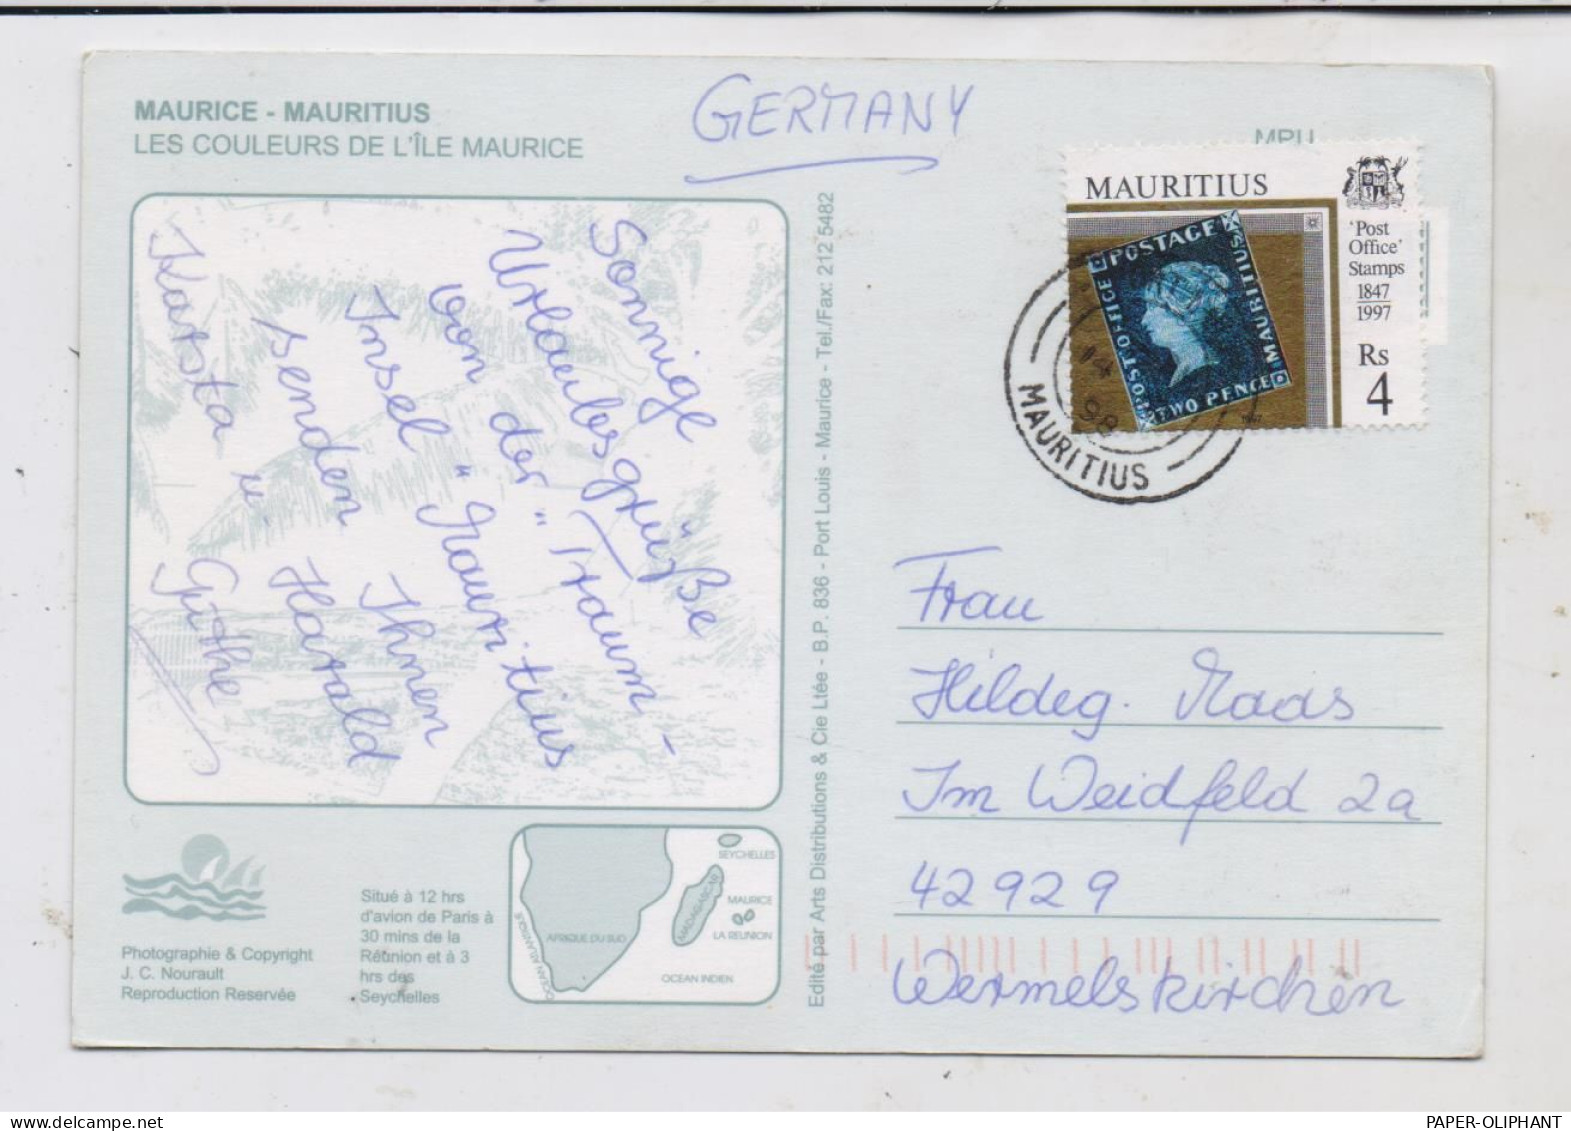 MAURICE - MAURITIUS
LES COULEURS DE L'ÎLE MAURICE
GERMANY
MAURITIUS
'Post
Office'
Stamps
1847
1997
Rs
4
POSTAGE
POST OFFICE
MAURITIUS
TWO PENCE
14
98
MAURITIUS
Sonnige
Urlaubsgrüße
von der "Traum-
Insel" Mauritius
senden Ihnen
Karsta u. Harald
Güthe
Frau
Hildeg. Maas
Im Weidfeld 2a
42929
Wermelskirchen
Edité par Arts Distributions & Cie Ltée - B.P. 836 - Port Louis - Maurice - Tel./Fax: 212 5482
Photographie & Copyright
J. C. Nourault
Reproduction Reservée
Situé à 12 hrs
d'avion de Paris à
30 mins de la
Réunion et à 3
hrs des
Seychelles
SEYCHELLES
MADAGASCAR
MAURICE
LA REUNION
AFRIQUE DU SUD
OCEAN ATLANTIQUE
OCEAN INDIEN
PAPER-OLIPHANT